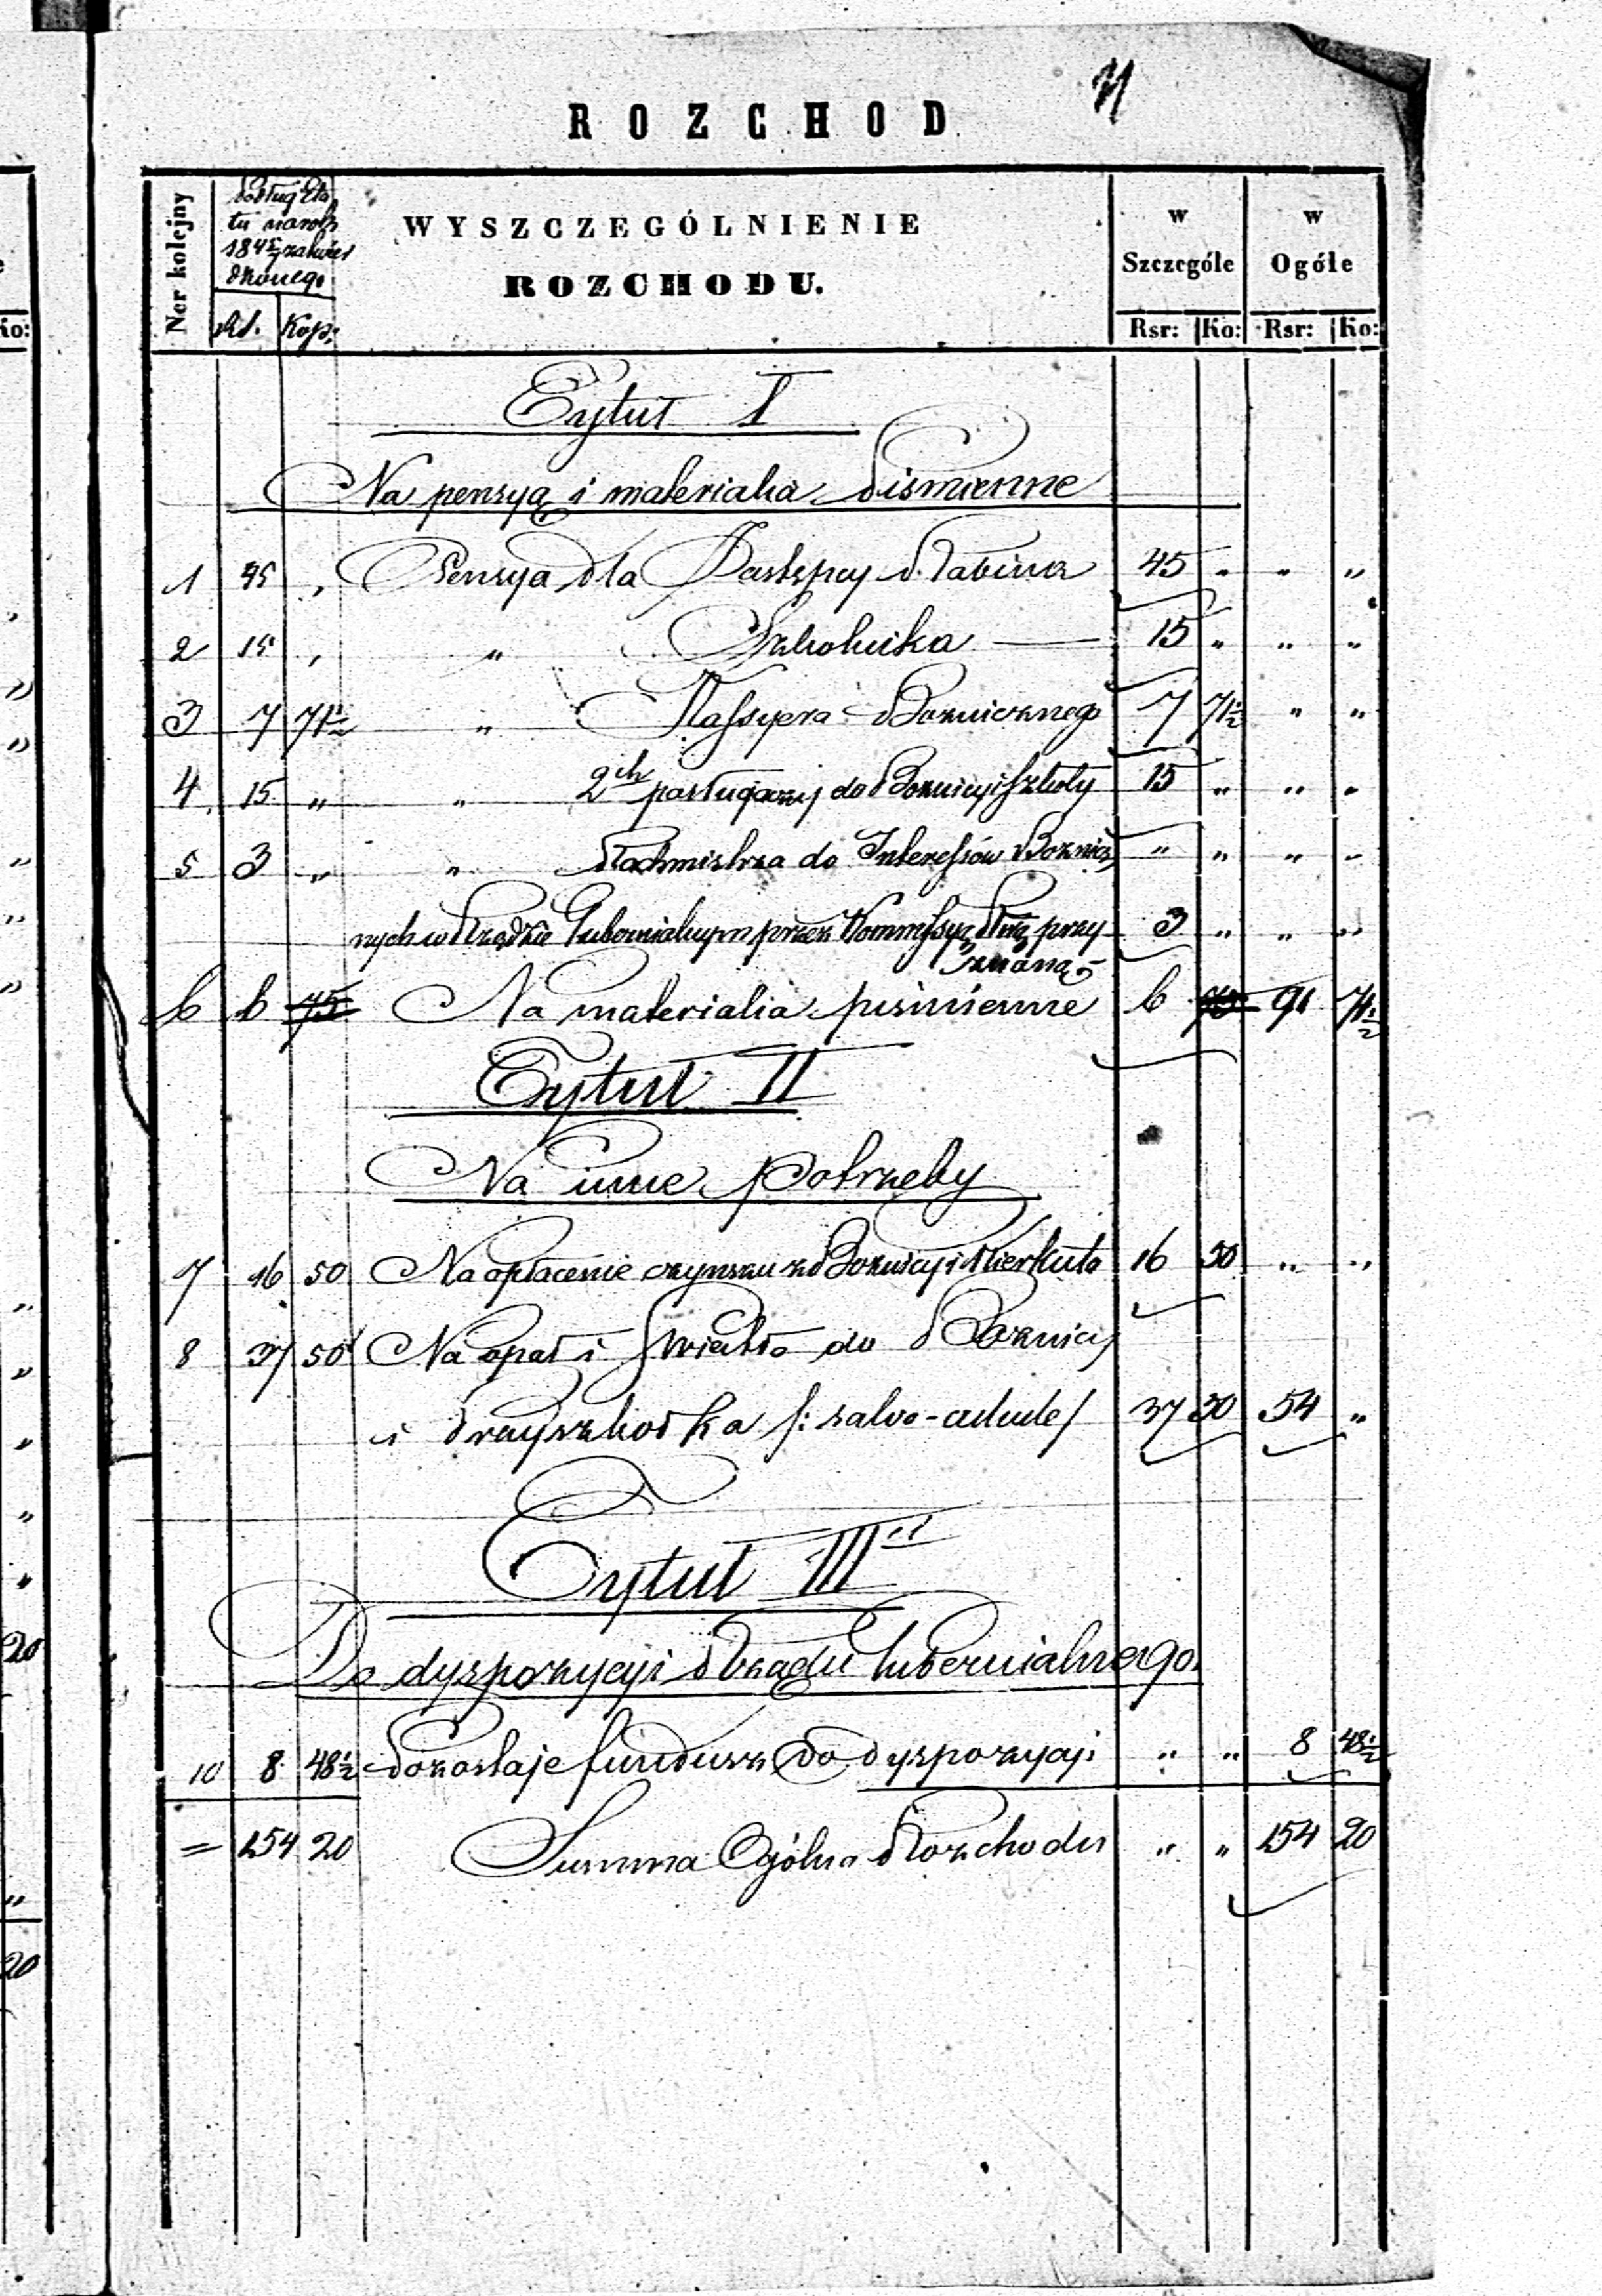 ROZCHOD
Ner kolejny
Podług Eta
tu na rok
184 zatwier
dzonego
Rs. Kop:
WYSZCZEGÓLNIENIE
ROZCHODU.
w Szczególe
w Ogóle
Rsr: Ko: Rsr: Ko:
Tytuł I
Na pensyą i materialia Piśmienne
1 45 „ Pensya dla Zastępcy Rabina 45 „ „ „
2 15 „ „ Szkolnika — 15 „ „ „
3 7 71½ „ Kassyera Bożnicznego 7 71½ „ „
4 15 „ „ 2ch posługaczy do Bożnicy i Szkoły 15 „ „ „
5 3 „ „ Rachmistrza do Interessów Bożnicz „ „ „ „
nych w Rządzie Gubernialnym przez Kommissyę Rz przy 3 „ „ „
znaną
6 6 75 Na materialia piśmienne 6 75 91 71½
Tytuł II
Na inne potrzeby
7 16 50 Na opłacenie czynszu z Bożnicy i Kierkuta 16 50 „ „
8 37 50 Na opał i Światło do Bożnicy
i Przyszkółka /: salvo-calculo/ 37 50 54 „
Tytuł III
Do dyspozycyi Rządu Gubernialnego.
10 8 48½ Pozostaje fundusz do dyspozycyi „ „ 8 48½
= 154 20 Summa Ogólna Rozchodu „ „ 154 20
Ko:
20
20